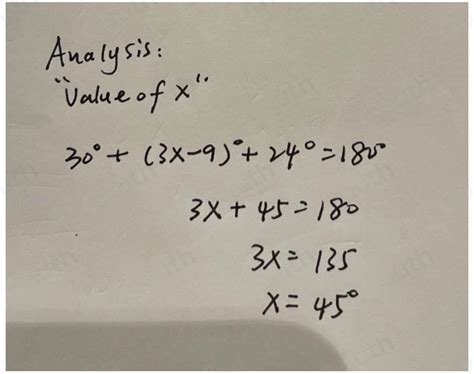 Analysis:
"Value of x"
30° + (3x-9)° + 24° = 180°
3x + 45 = 180
3x = 135
x = 45°